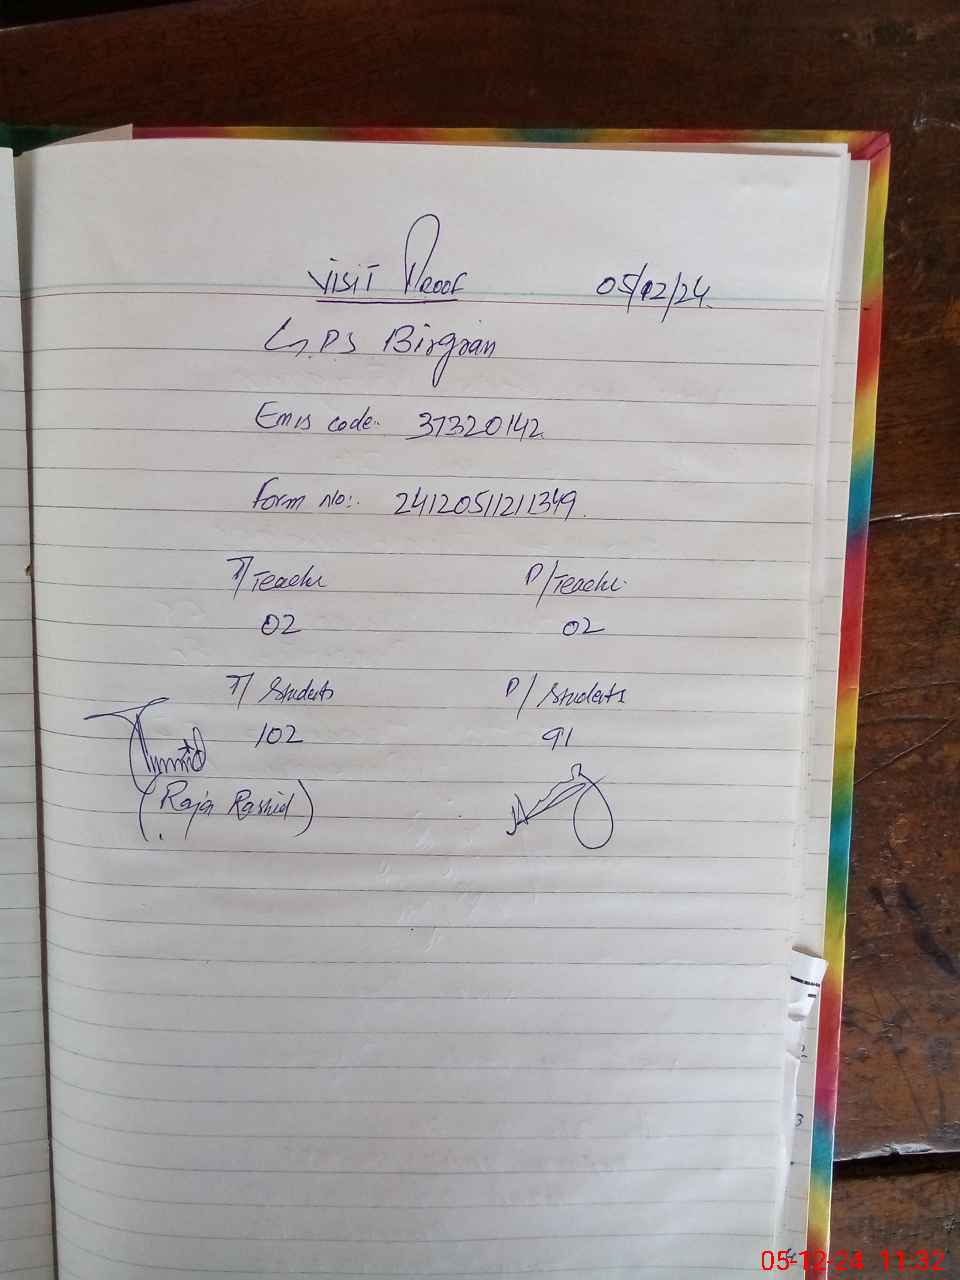 Visit Proof 05/12/24
G.P.S Birgran
Emis code:- 37320142
Form No:- 24120511211349
T/Teacher P/Teacher
02 02
T/Students P/Students
102 91
(Raja Rashid)
2
3
05-12-24 11:32